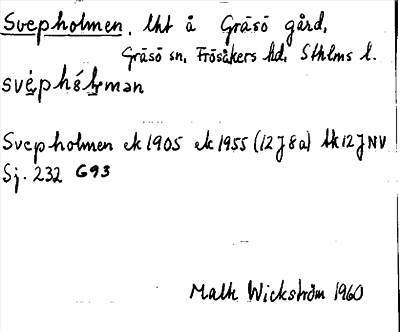 Svepholmen, lht å Gräsö gård,
Gräsö sn, Frösåkers hd, Sthlms l.
Svepholmen ek 1905 ek 1955 (12J8a) tk 12J NV
Sj. 232 G93
Malte Wickström 1960